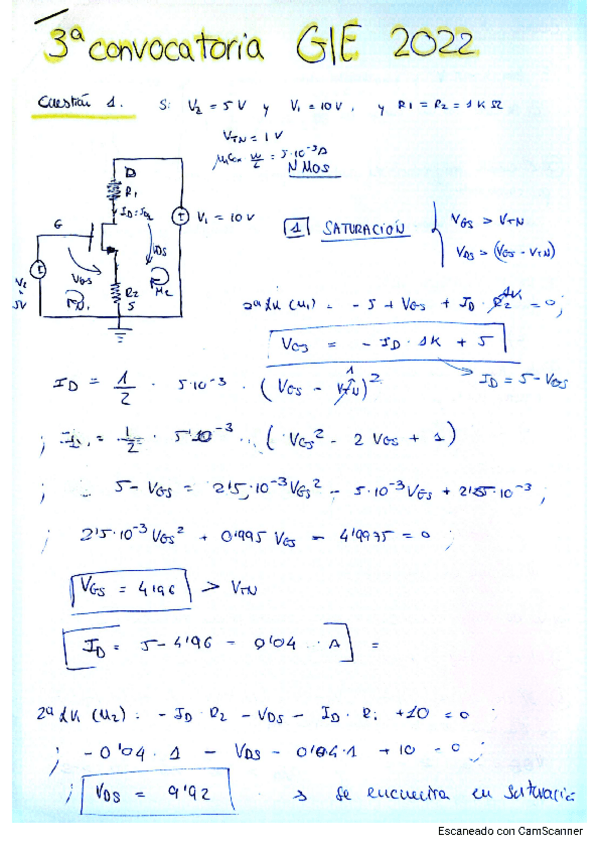 3ª convocatoria GIE 2022
Cuestión 1. Si V2 = 5 V y V1 = 10 V, y R1 = R2 = 1K Ω
VTN = 1 V
μnCox W/L = 5·10^-3 A
NMOS
D
R1
ID = IR2
G
V1 = 10 V
VDS
VGS
V2
5V
M1
R2
S
M2
1 SATURACIÓN
VGS > VTN
VDS > (VGS - VTN)
2ª LK (M1) = - 5 + VGS + ID · R2 1K = 0 ;
VGS = - ID · 1K + 5
ID = 5 - VGS
ID = 1/2 · 5·10^-3 · (VGS - VTN 1)^2
; ID = 1/2 · 5·10^-3 · (VGS^2 - 2 VGS + 1)
; 5 - VGS = 2'5·10^-3 VGS^2 - 5·10^-3 VGS + 2'5·10^-3 ;
; 2'5·10^-3 VGS^2 + 0'995 VGS - 4'9975 = 0 ;
VGS = 4'96 > VTN
ID = 5 - 4'96 = 0'04 A =
2ª LK (M2) : - ID · R2 - VDS - ID · R1 + 10 = 0 ;
; - 0'04 · 1 - VDS - 0'04·1 + 10 = 0 ;
; VDS = 9'92 → se encuentra en saturació
Escaneado con CamScanner